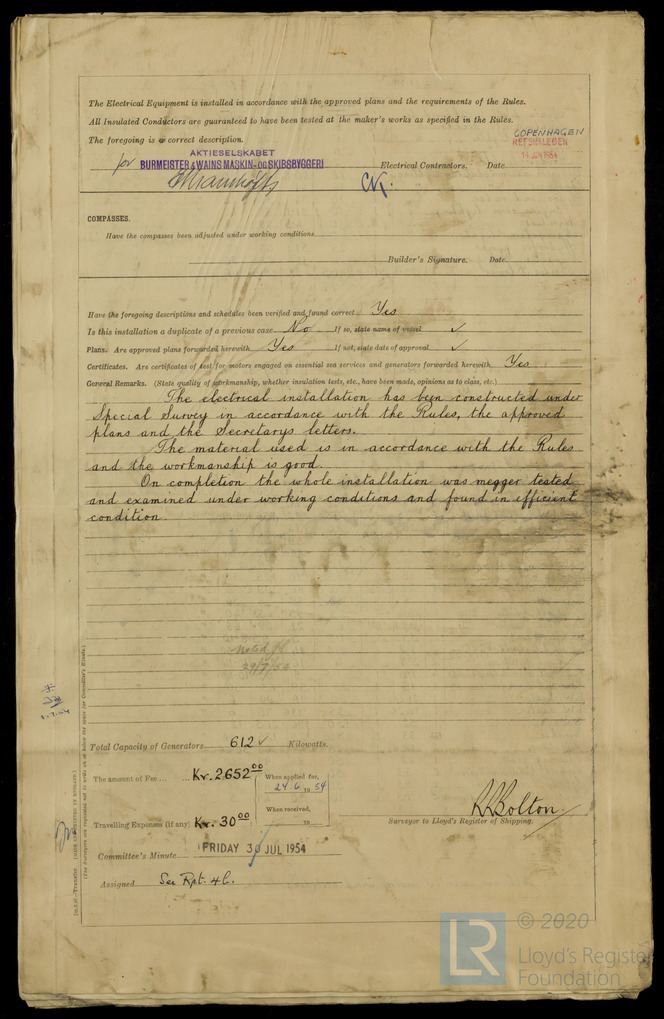 The Electrical Equipment is installed in accordance with the approved plans and the requirements of the Rules.
All Insulated Conductors are guaranteed to have been tested at the maker's works as specified in the Rules.
The foregoing is a correct description.
COPENHAGEN
REFSHALEØEN
AKTIESELSKABET
for BURMEISTER & WAINS MASKIN- OG SKIBSBYGGERI Electrical Contractors. Date
JUN 1954
COMPASSES.
Have the compasses been adjusted under working conditions
Builder's Signature. Date
Have the foregoing descriptions and schedules been verified and found correct Yes
Is this installation a duplicate of a previous case No If so, state name of vessel ✓
Plans. Are approved plans forwarded herewith Yes If not, state date of approval ✓
Certificates. Are certificates of test for motors engaged on essential sea services and generators forwarded herewith Yes
General Remarks. (State quality of workmanship, whether insulation tests, etc., have been made, opinions as to class, etc.)
The electrical installation has been constructed under
Special Survey in accordance with the Rules, the approved
plans and the Secretarys letters.
The material used is in accordance with the Rules
and the workmanship is good.
On completion the whole installation was megger tested
and examined under working conditions and found in efficient
condition
Noted
29/7/54
Total Capacity of Generators 612 ✓ Kilowatts.
The amount of Fee ... ... Kr. 2652.00 When applied for,
24.6 19 54
When received,
Travelling Expenses (if any) Kr. 30.00 19
RRBolton.
Surveyor to Lloyd's Register of Shipping.
Committee's Minute FRIDAY 30 JUL 1954
Assigned See Rpt. 4b.
(The Surveyors are requested not to write on or below the space for Committee's Minute.)
(MADE OR PRINTED IN ENGLAND.)
LR
© 2020
Lloyd's Register
Foundation